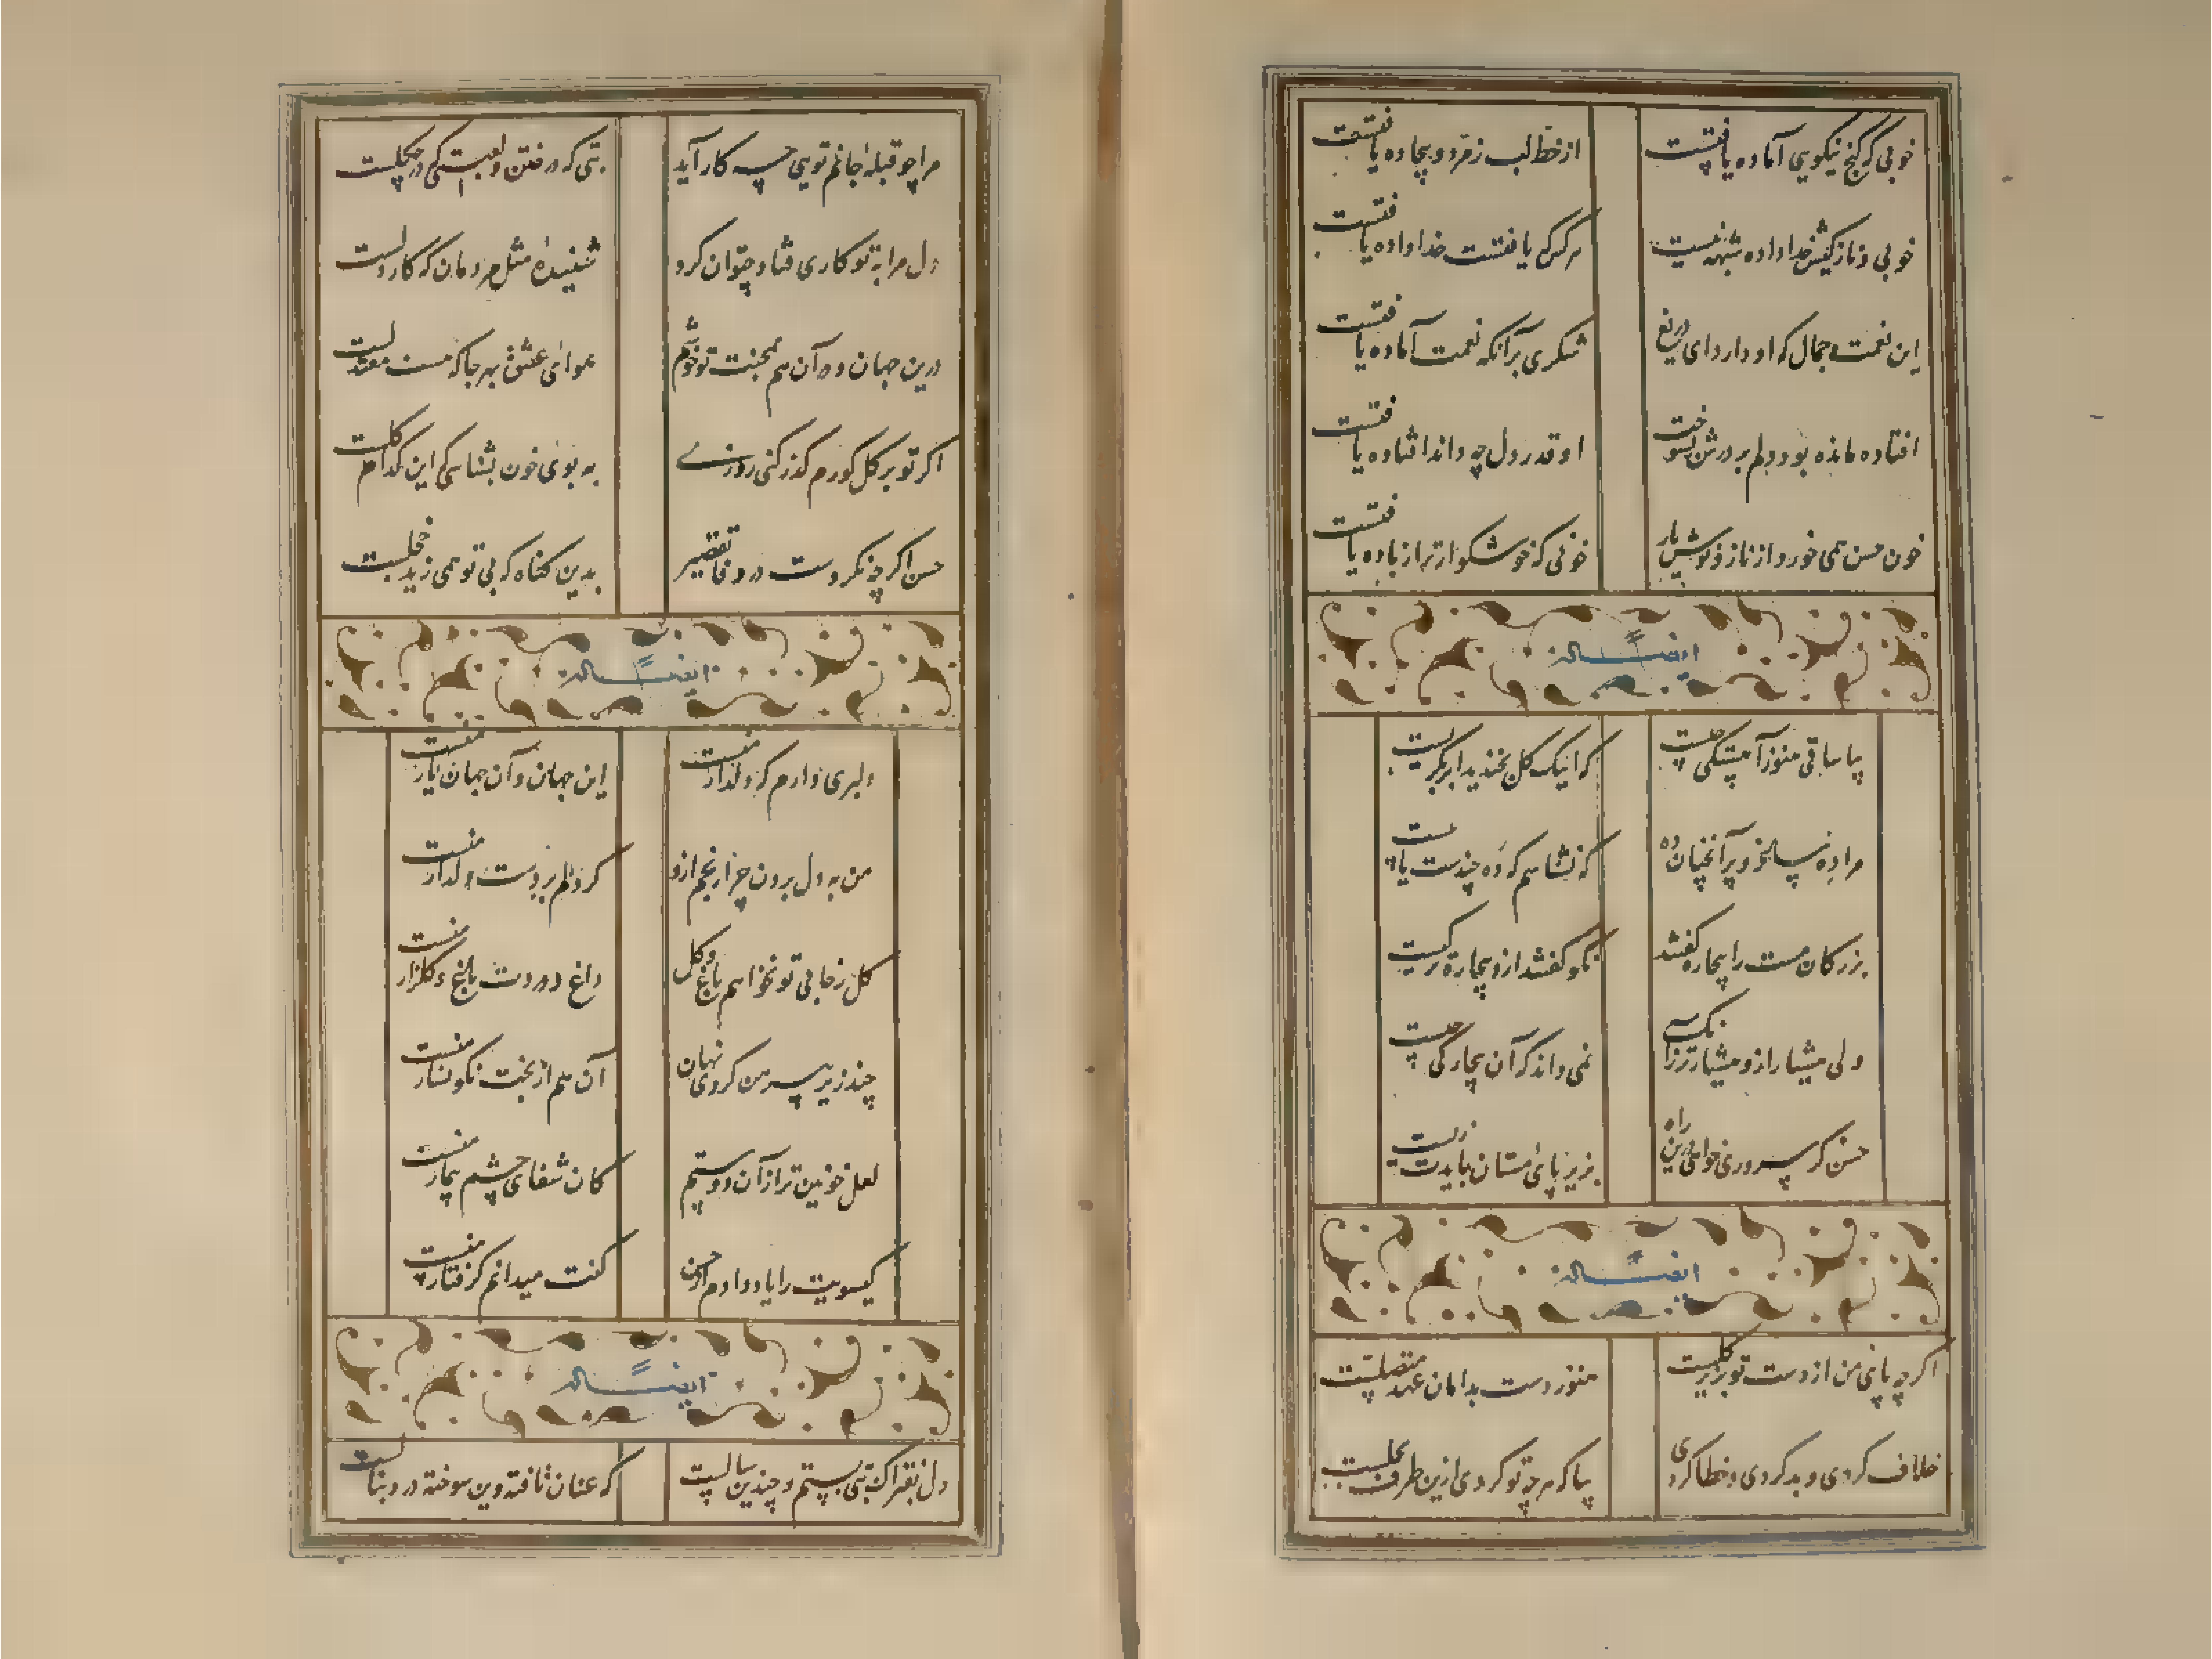 خوبی که گنج نیکویی آماده یافتست
از خط لب زمرد و بیجاده یافتست
خوبی و ناز کیش خدا داده شبهه نیست
هر کس که یافتست خدا داده یافتست
این نعمت جمال که او دارد ای دریغ
شکری بر آنکه نعمت آماده یافتست
افتاده مانده بود دلم بر درش بسوخت
او قدر دل چه داند افتاده یافتست
خون حسن همی خورد از ناز نوش یار
خونی که خوشگوارتر از باده یافتست
ایضاً له
بیا ساقی هنوز آهستگی چیست
که اینک گل بخندید ابر بگریست
مرا ده و پر آنچنان ده
که نشناسم که ده چندست یا بیست
بزرگان مست را بیچاره گفتند
نکو گفتند ازو بیچاره تر کیست
ولی هشیار ازو هشیارتر زانک
نمی داند که آن بیچارگی چیست
حسن گر سروری خواهی درین راه
بزیر پای مستان بایدت زیست
ایضاً له
اگر چه پای من از دست تو بزیر گلست
هنوز دست بدامان عهد متصلست
خلاف کردی و بد کردی و خطا کردی
بیا که هر چه تو کردی ازین طرف بحلست
مرا چو قبله جانم تویی چه کار آید
بتی که در ختن و لعبتی که در چگلست
دل مرا به تو کاری فتاد چتوان کرد
شنیده مثل مردمان که کار دلست
درین جهان و در آن هم بمحبت تو خوشم
هوای عشق بهر جا که هست معتدلست
اگر تو بر گل گورم گذر کنی روزی
به بوی خون بشناسی که این کدام گلست
حسن اگر چه نکردست در وفا تقصیر
بدین گناه که بی تو همی زید خجلست
ایضاً له
دلبری دارم که دلدار منست
این جهان و آن جهان یار منست
من به دل بردن چرا رنجم ازو
گر دلم بردست دلدار منست
گل ز جایی تو نخواهم باغ و گل
داغ دردت باغ و گلزار منست
چند زیر سر من کردی نهان
آن هم از بخت نگونسار منست
لعل خونین تر از آن دو چشم
کان شفای چشم بیمار منست
گیسویت را یاد دادم از حسن
گفت میدانم گرفتار منست
ایضاً له
دل بفتراک بتی بستم و چندین سالست
که عنان تافته وین سوخته در دنبالست